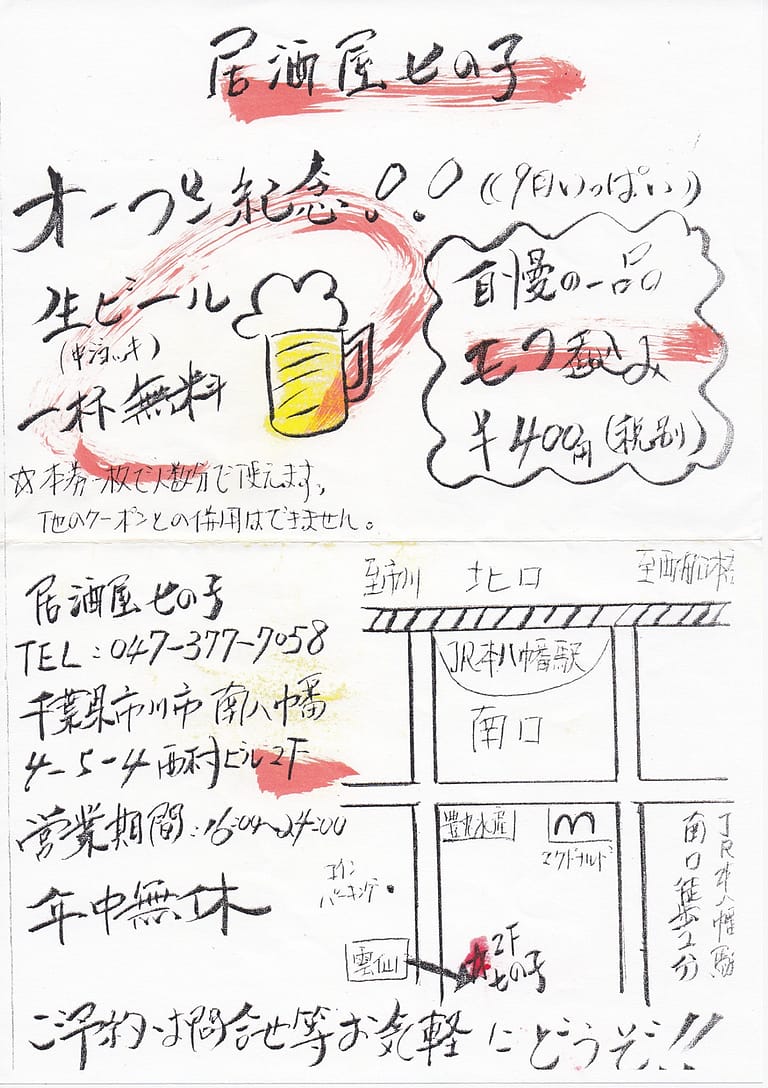 居酒屋七の子
オープン紀念!! ((9月いっぱい))
生ビール
(中ジョッキ)
一杯無料
自慢の一品
モツ煮込み
¥400円(税別)
☆本券一枚で人数分で使えます。
他のクーポンとの併用はできません。
居酒屋七の子
TEL:047-377-7058
千葉県市川市南八幡
4-5-4西村ビル2F
営業期間:16:00~24:00
年中無休
至市川 北口 至西船橋
JR本八幡駅
南口
豊丸水産
マクドナルド
JR本八幡駅
南口徒歩2分
コイン
パーキング
雲仙
2F
七の子
ご予約・お問合せ等お気軽にどうぞ!!